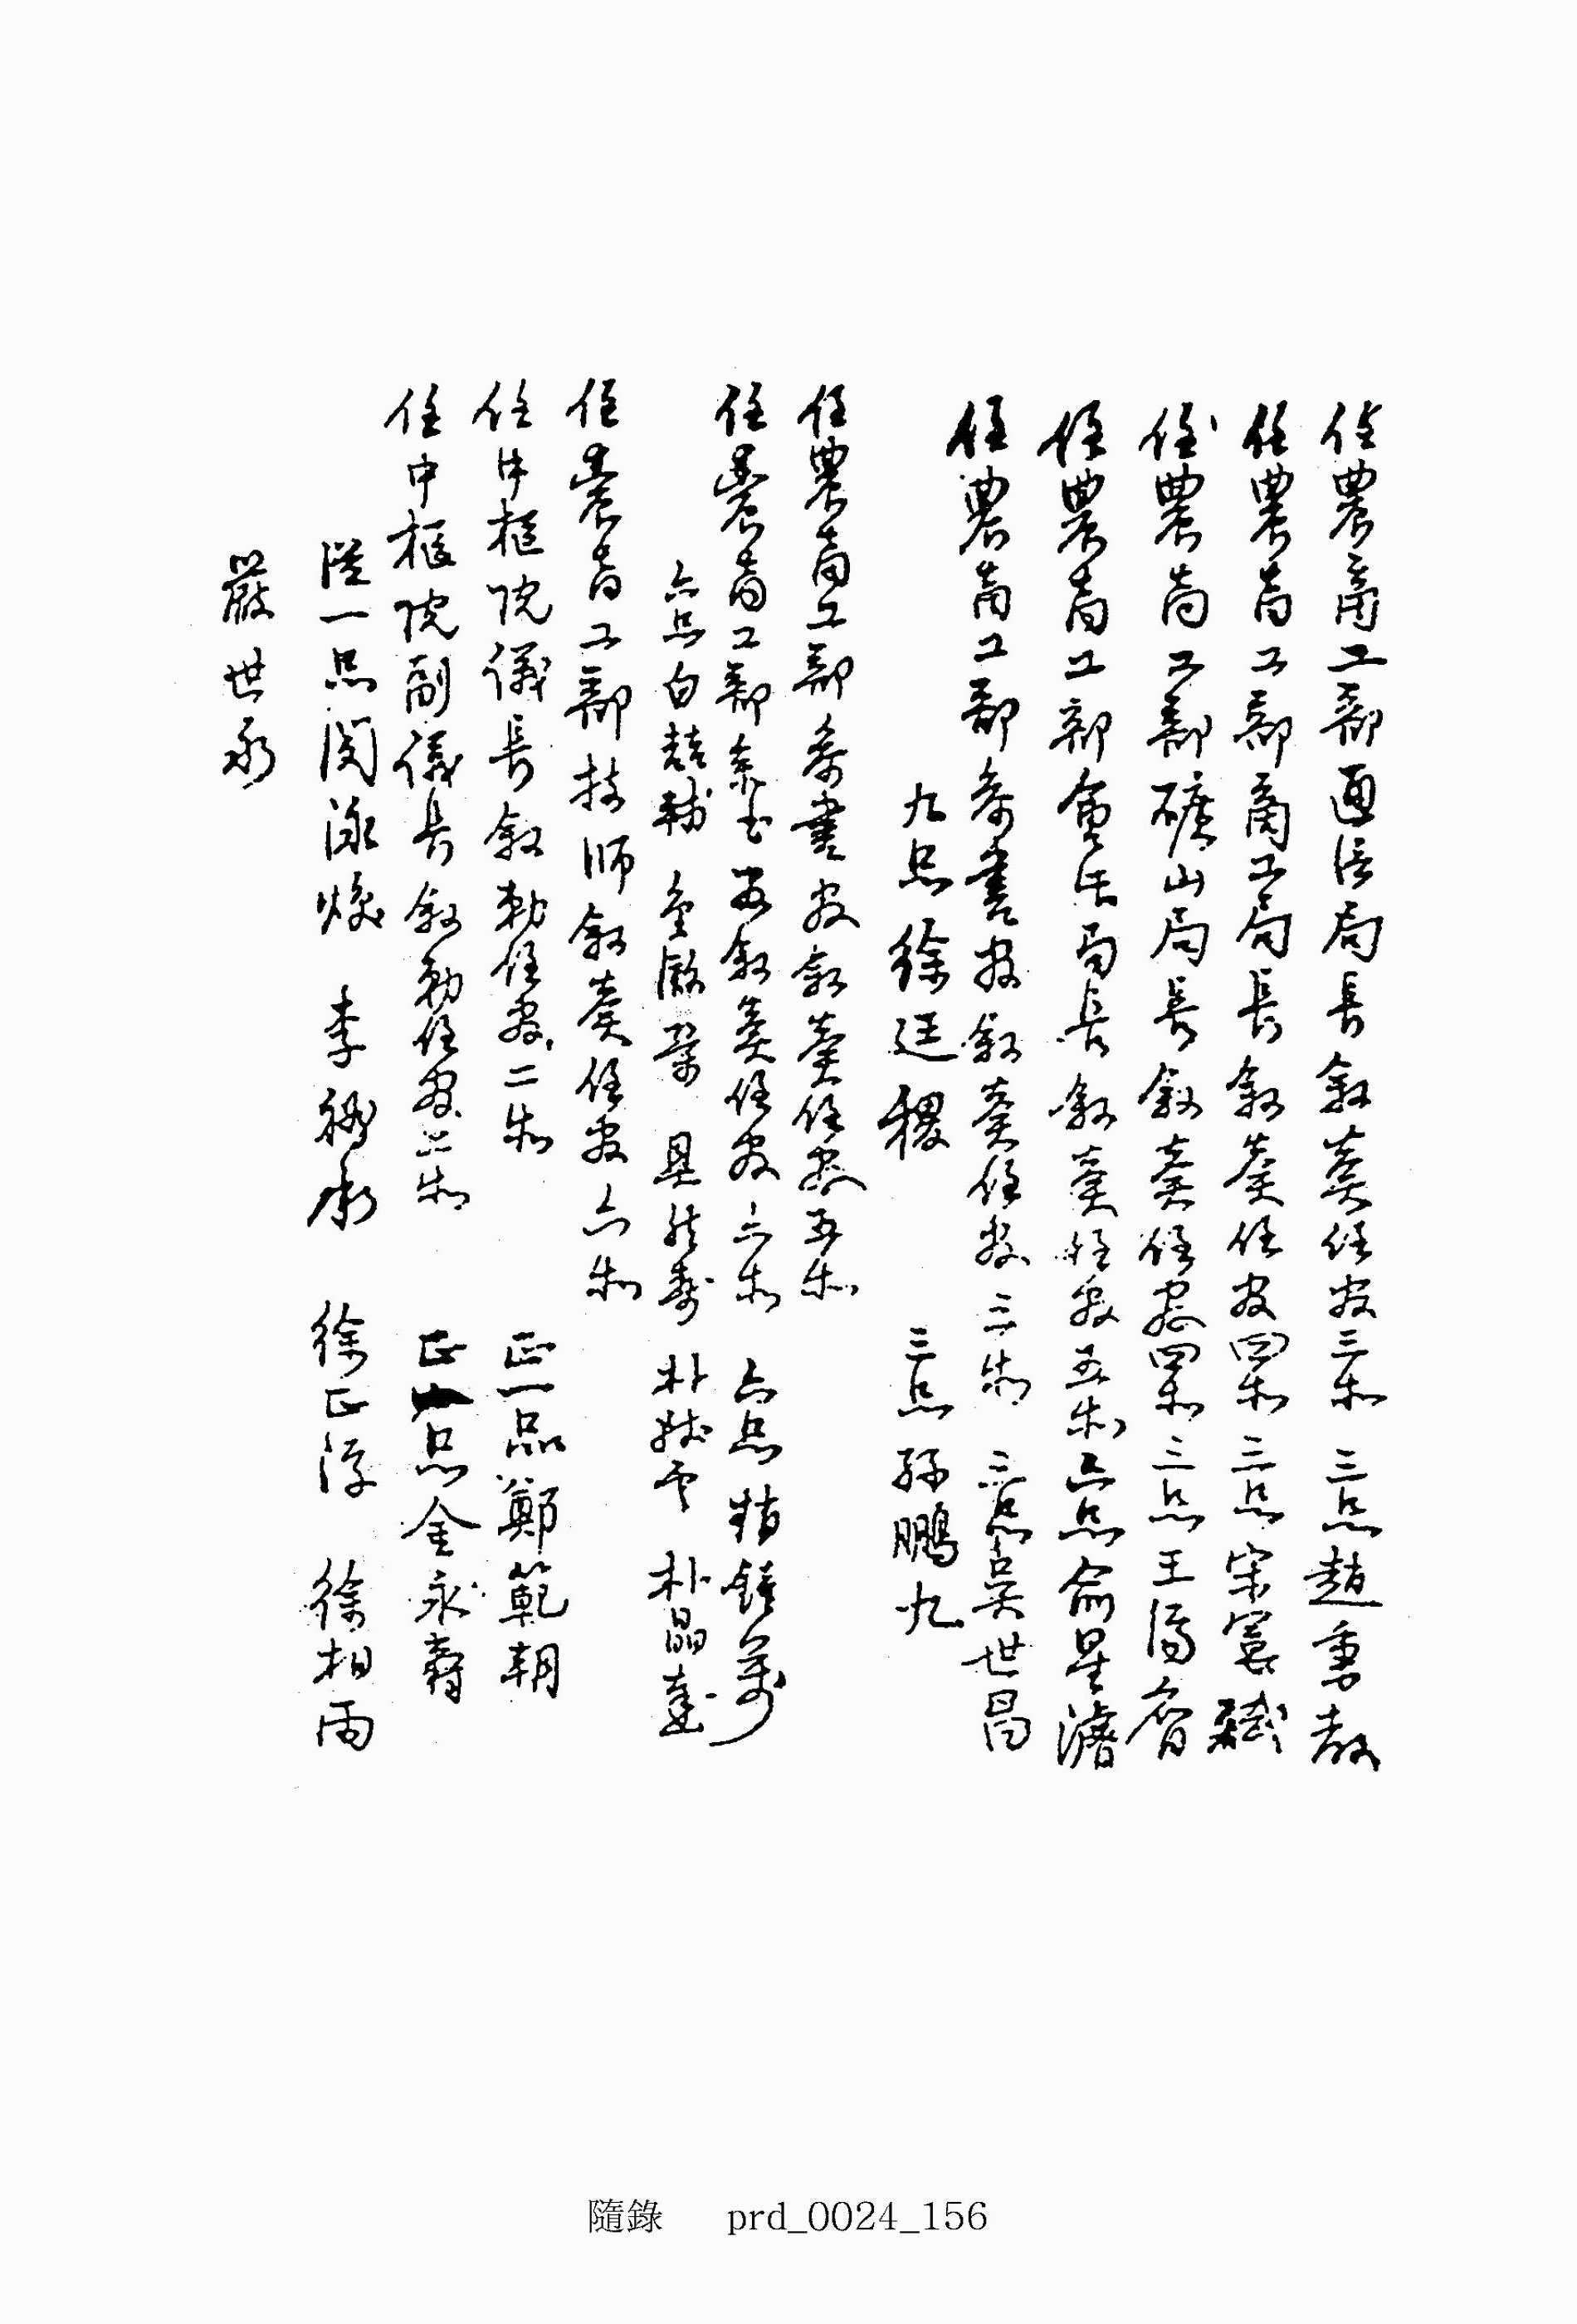 任農商工部通信局長敍奏任官三等 三品趙秉敎
任農商工部商工局長敍奏任官四等 三品宋憲斌
任農商工部礦山局長敍奏任官四等 三品王濟膺
任農商工部會計局長敍奏任官五等 六品俞星濬
任農商工部參書官敍奏任官三等 三品吳世昌
九品徐廷稷 三品孫鵬九
任農商工部參書官敍奏任官五等
任農商工部參書官敍奏任官六等 六品
六品白喆 朴 朴晶
任農商工部技師敍奏任官六等
任中樞院議長敍勅任官二等 正一品鄭範朝
任中樞院副議長敍勅任官二等 正品金永壽
從一品閔泳煥 李 徐正淳 徐相雨
嚴世永
隨錄 prd_0024_156